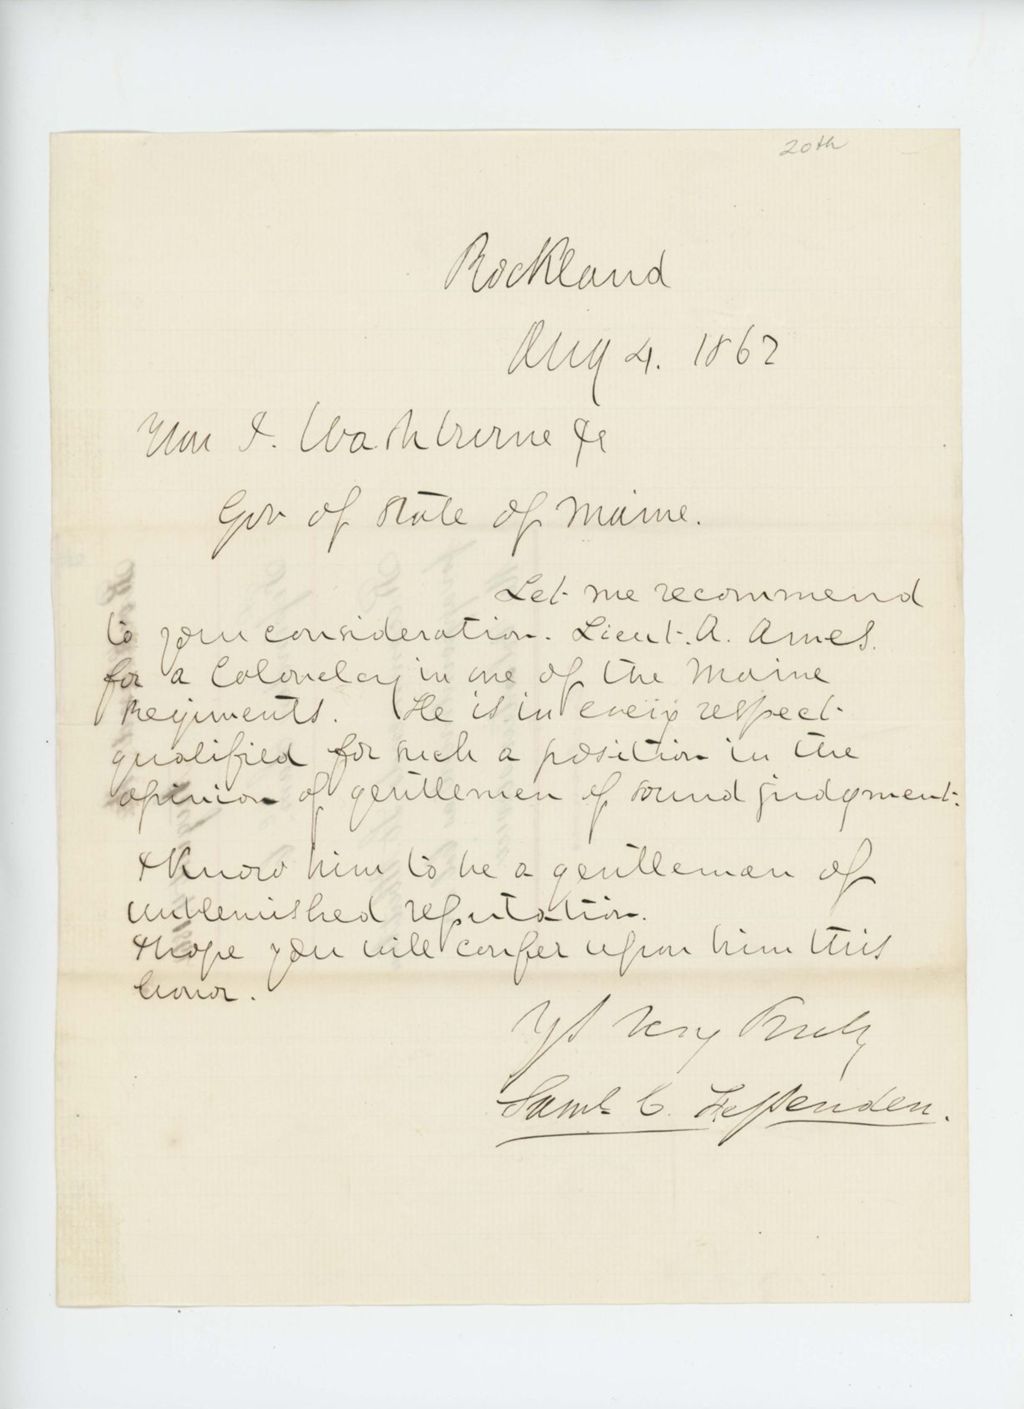 20th
Rockland
Aug 4. 1862
Hon I. Washburne &c
Gov of State of Maine.
Let me recommend
to your consideration. Lieut. A. Ames.
for a Colonelcy in one of the Maine
Regiments. He is in every respect
qualified for such a position in the
opinion of gentlemen of sound judgment.
I know him to be a gentleman of
unblemished reputation.
I hope you will confer upon him this
honor.
Ys Very Truly
Saml C. Fessenden.